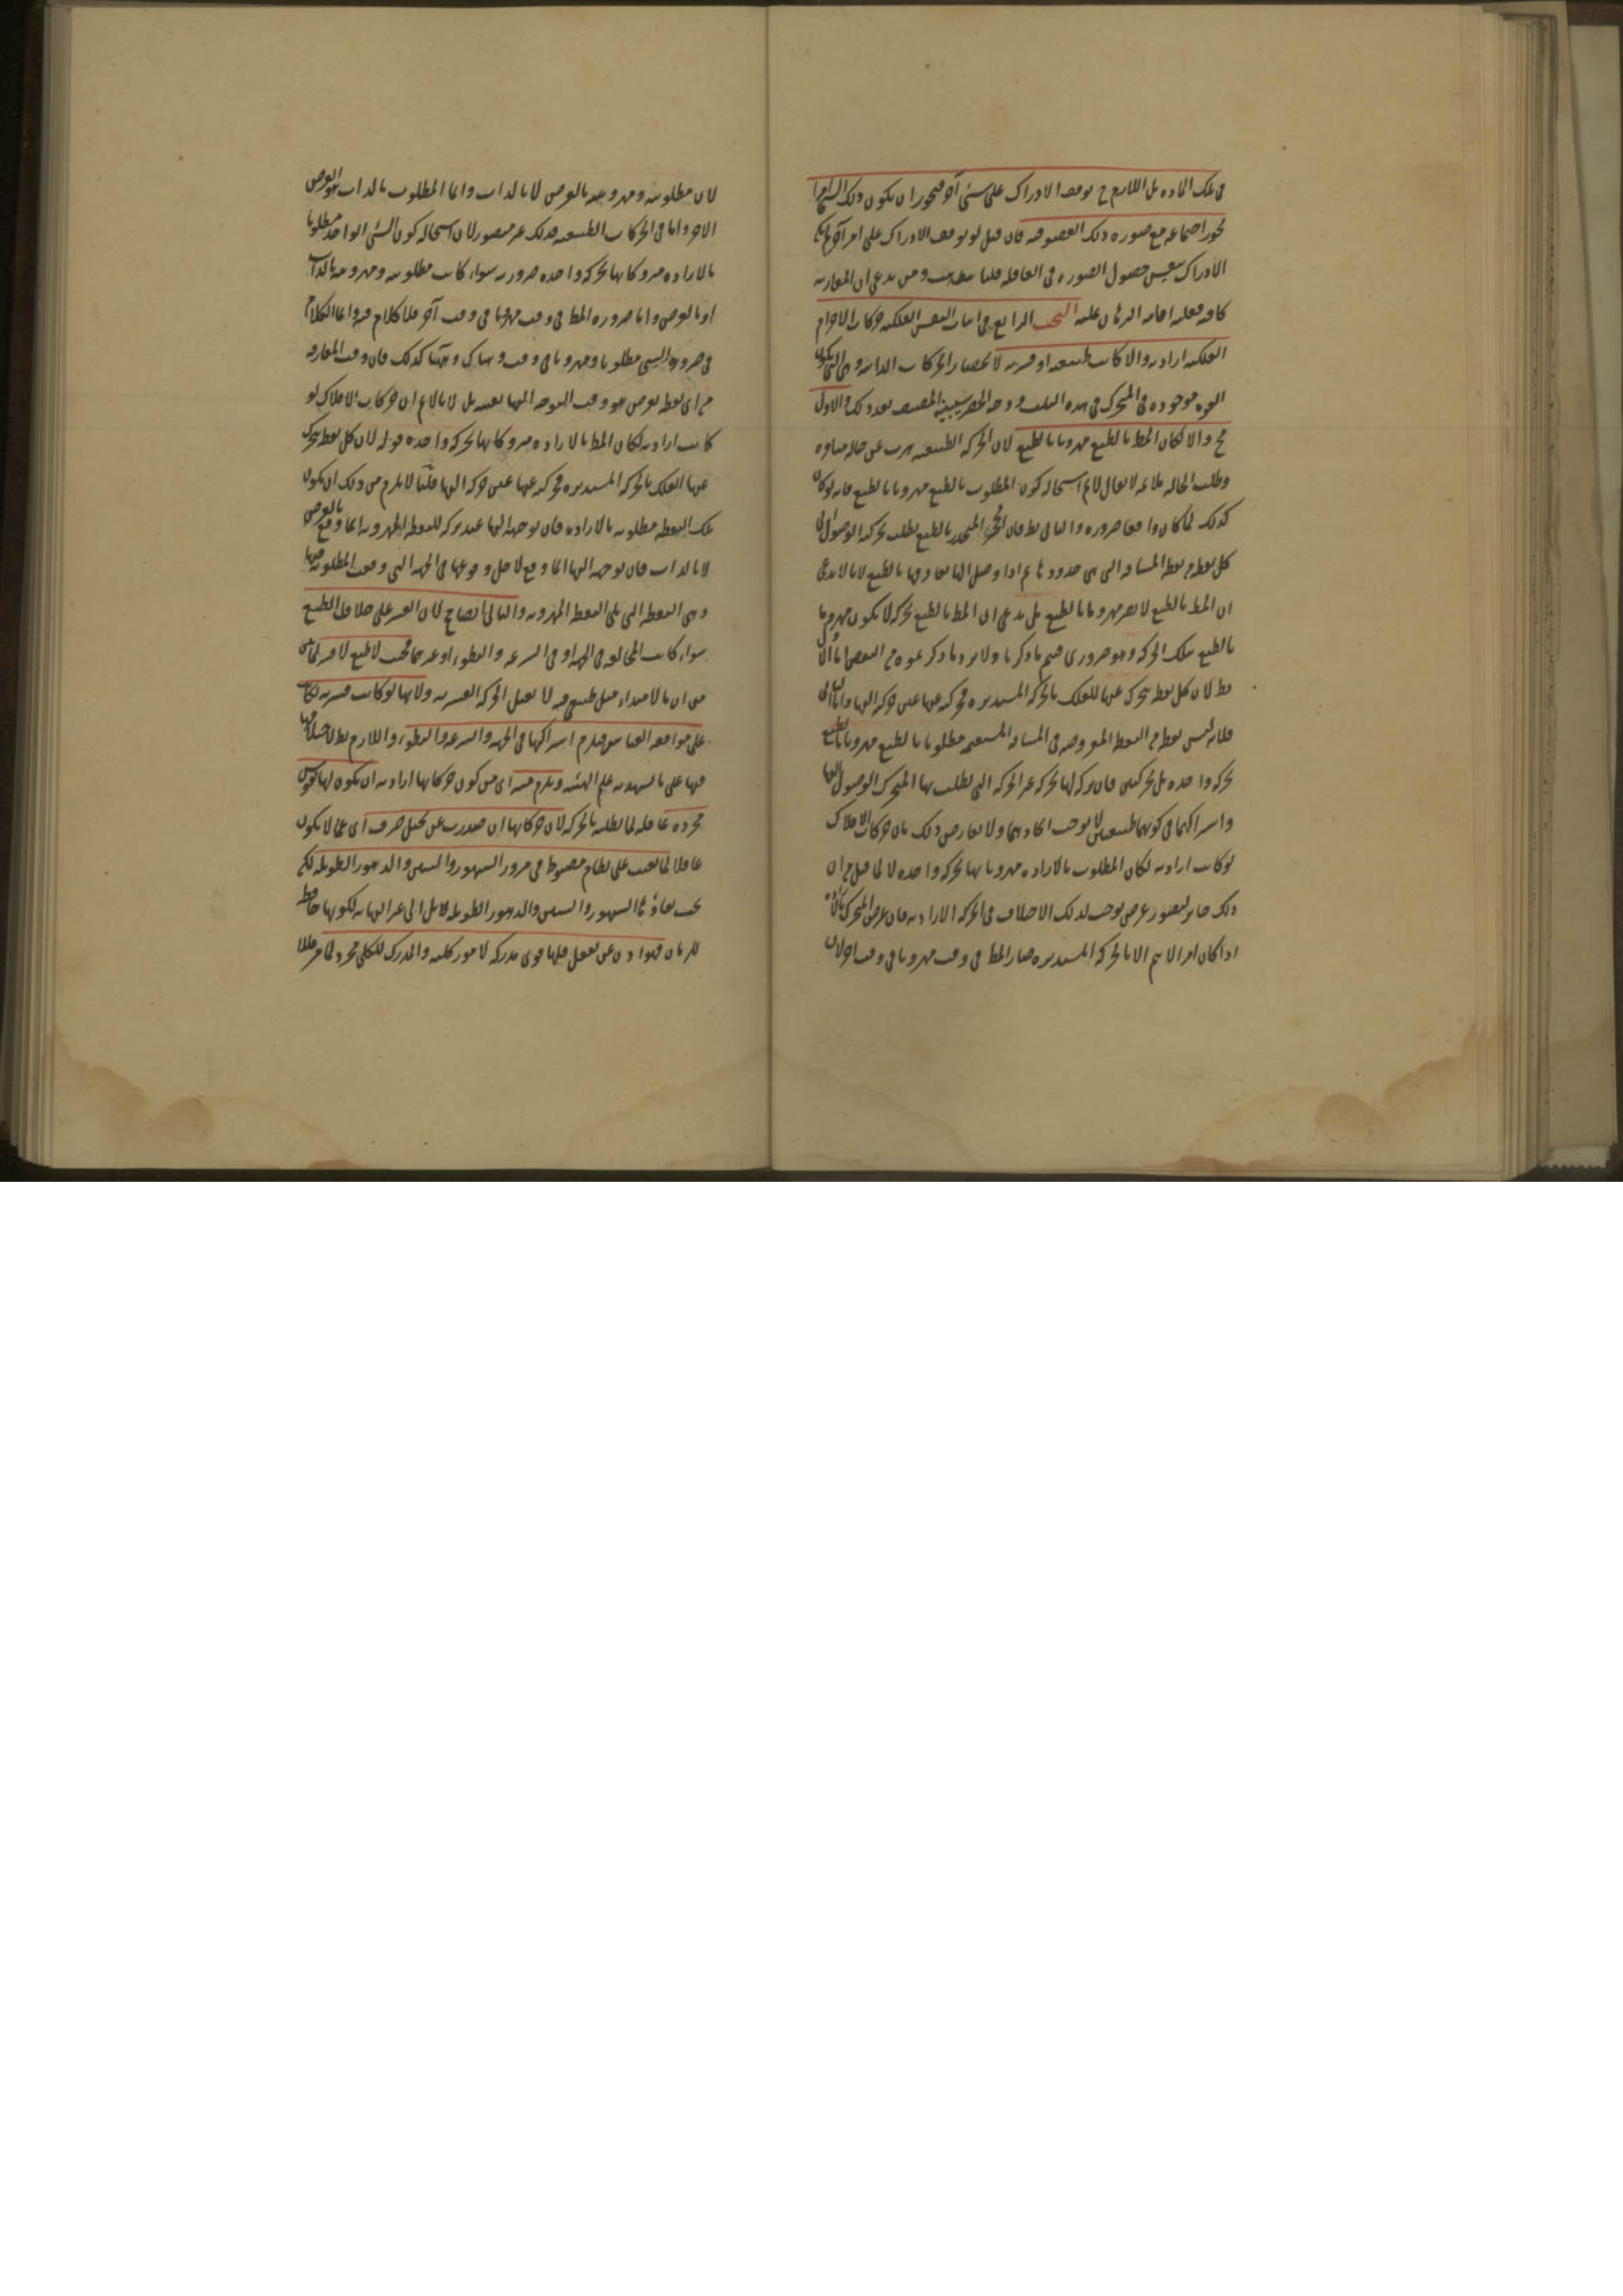 في تلك المادة بل اللازم ح توقف الادراك على شئ آخر فيجوز ان يكون ذلك الشئ امرا
الادراك بنفس حصول الصورة في العاقلة قلنا ومن يدعى ان المقارنة
كافية فعليه اقامة البرهان عليه البحث الرابع في اثبات النفس الفلكية حركات الاجرام
الفلكية ارادية والا لكانت طبيعية او قسرية لانحصار الحركات الذاتية وهى التى يكون
القوة موجودة في المتحرك في هذه الثلث ووجه الحصر سيبينه المصنف بعد ذلك والاول
مح والا لكان المط بالطبع مهروبا بالطبع لان الحركة الطبيعية هرب عن حالة منافرة
وطلب الحالة ملائمة لا يقال لانم استحالة كون المطلوب بالطبع مهروبا بالطبع فانه لو كان
كذلك لما كان واقعا ضرورة والتالى بط فان الحجر المنحدر بالطبع يطلب بحركته الوصول الى
كل نقطة من نقط المسافة التى هى حدود ما ثم اذا وصل اليها يفارقها بالطبع لانا لا ندعى
ان المط بالطبع لا يصير مهروبا بالطبع بل ندعى ان المط بالطبع بحركة لا يكون مهروبا
بالطبع بتلك الحركة وهو ضرورى فيتم ما ذكرنا ولا يرد ما ذكرتموه من النقض اما الاول
فظ لان كل نقطة يتحرك عنها الفلك بالحركة المستديرة فحركته عنها عين حركته اليها واما الثانى
فلانه ليس نقطة من النقط المفروضة في المسافة المستقيمة مطلوبا بالطبع مهروبا بالطبع
بحركة واحدة بل بحركتين فان تركه لها بحركة غير الحركة التى يطلب بها المتحرك الوصول اليها
واشتراكهما في كونهما طبيعيتين لا يوجب اتحادهما ولا يعارض ذلك بان حركات الافلاك
لو كانت ارادية لكان المطلوب بالارادة مهروبا بها بحركة واحدة لانا قبل ح ان
ذلك جائز لتصور غرض يوجب لذلك الاختلاف في الحركة الارادية فان غرض المتحرك بالارادة
اذا كان امرا لا يتم الا بالحركة المستديرة صار المط في وقت مهروبا في وقت آخر لان
لان مطلوبيته ومهروبيته بالعرض لا بالذات وانما المطلوب بالذات هو الغرض
الاخر واما في الحركات الطبيعية فذلك غير متصور لان استحالة كون الشئ الواحد مطلوبا
بالارادة متروكا بها بحركة واحدة ضرورية سواء كانت مطلوبيته ومهروبيته بالذات
او بالعرض واما صيرورة المط في وقت مهروبا في وقت آخر فلا كلام فيه وانما الكلام
في صيرورة الشئ مطلوبا ومهروبا في وقت وهناك وههنا كذلك فان وقت المفارقة
من اى نقطة يفرض هو وقت التوجه اليها بعينه بل لانا لانم ان حركات الافلاك لو
كانت ارادية لكان المط بالارادة متروكا بها بحركة واحدة قوله لان كل نقطة يتحرك
عنها الفلك بالحركة المستديرة فحركته عنها عين حركته اليها قلنا لا يلزم من ذلك ان يكون
تلك النقطة مطلوبة بالارادة فان توجهه اليها عند تركه للنقطة المهروبة انما وقع بالعرض
لا بالذات فان توجهه اليها انما وقع لاجل وقوعها في الجهة التى وقعت المطلوبة فيها
وهى النقطة التى تلى النقطة المهروبة والثانى ايضا مح لان القسر على خلاف الطبع
سواء كانت المخالفة في الجهة او في السرعة والبطؤ او غيرهما فحيث لا طبع لا قسر لما مر
من ان ما لا مبدأ ميل طبيعى فيه لا يقبل الحركة القسرية ولانها لو كانت قسرية لكانت
على موافقة القاسر فيلزم اشتراكها في الجهة والسرعة والبطؤ واللازم بط لاختلافها
فيها على ما يشهد به علم الهيئة ويلزم منه اى من كون حركاتها ارادية ان يكون لها نفوس
مجردة عاقلة لما تطلبه بالحركة لان حركاتها ان صدرت عن تخيل صرف اى عما لا يكون
عاقلا لما بقيت على نظام مضبوط في مرور الشهور والسنين والدهور الطويلة لكن
يجب بقاؤها الشهور والسنين والدهور الطويلة لا بل الى غير النهاية لكونها حافظة
للزمان فهو اذن عن تعقل فلها قوى مدركة لامور كلية والمدرك للكلى مجرد لما مر فللا